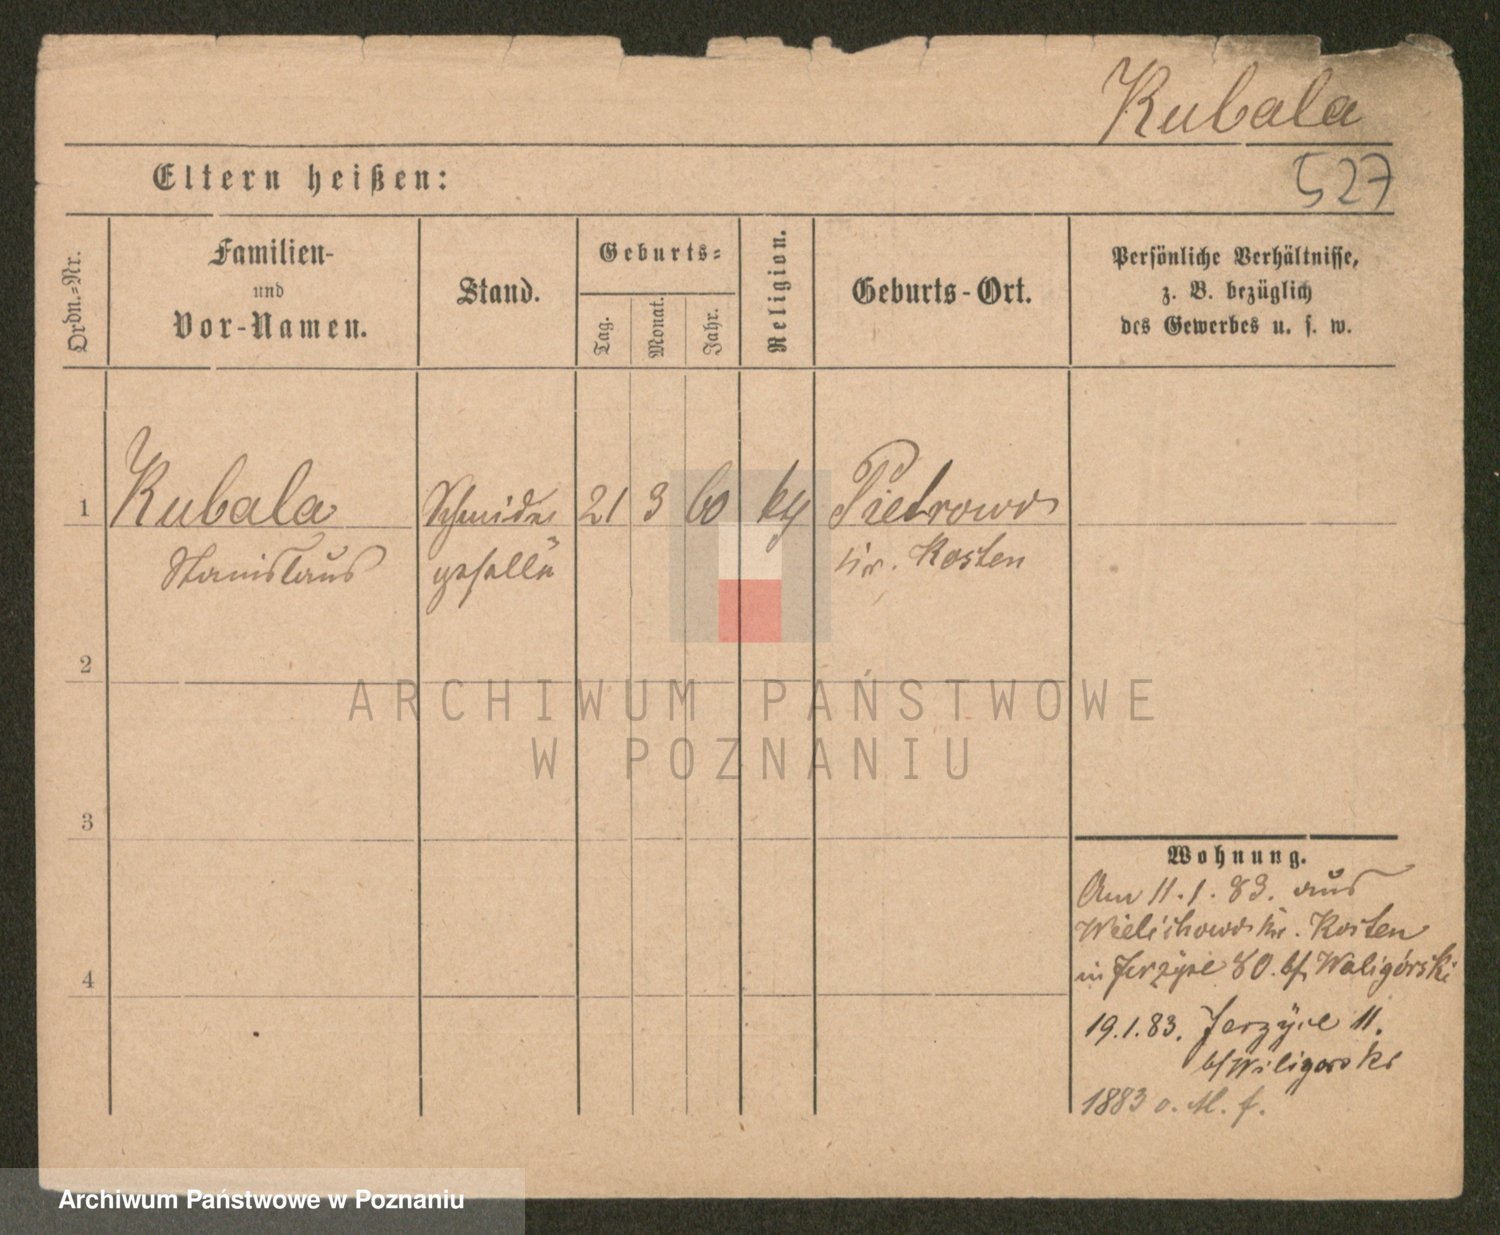 Kubala
Eltern heißen:
527
Ordn.-Nr.
Familien-
und
Vor-Namen.
Stand.
Geburts-
Tag.
Monat.
Jahr.
Religion.
Geburts-Ort.
Persönliche Verhältnisse,
z. B. bezüglich
des Gewerbes u. s. w.
1
Kubala
Schneider
21
3
60
Pietrowo
Stanislaus
geselle
Kr. Kosten
2
ARCHIWUM PAŃSTWOWE
W POZNANIU
3
4
Wohnung.
Am 11.1.83. aus
Wielichowo Kr. Kosten
in Jerzyce 80. b/ Waligórski
19.1.83. Jerzyce 11.
b/ Waligorski
1883 o. M. f.
Archiwum Państwowe w Poznaniu